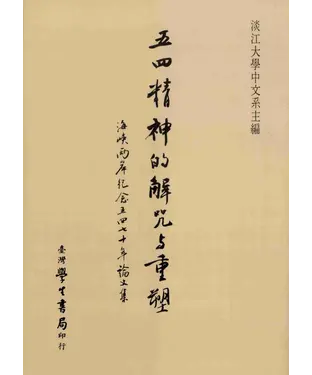 淡江大學中文系主編
五四精神的解咒与重塑
海峡兩岸紀念五四七十年論文集
臺灣學生書局印行